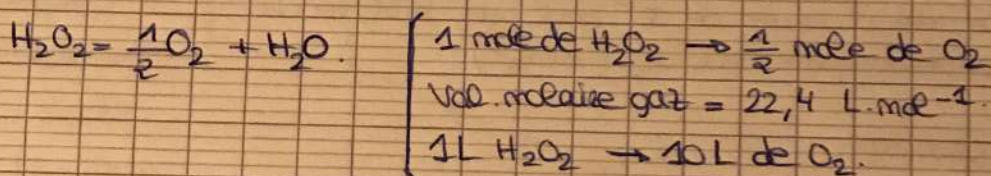 H₂O₂ = 1/2 O₂ + H₂O.
1 mole de H₂O₂ → 1/2 mole de O₂
Vol. molaire gaz = 22,4 L.mol⁻¹.
1L H₂O₂ → 10L de O₂.